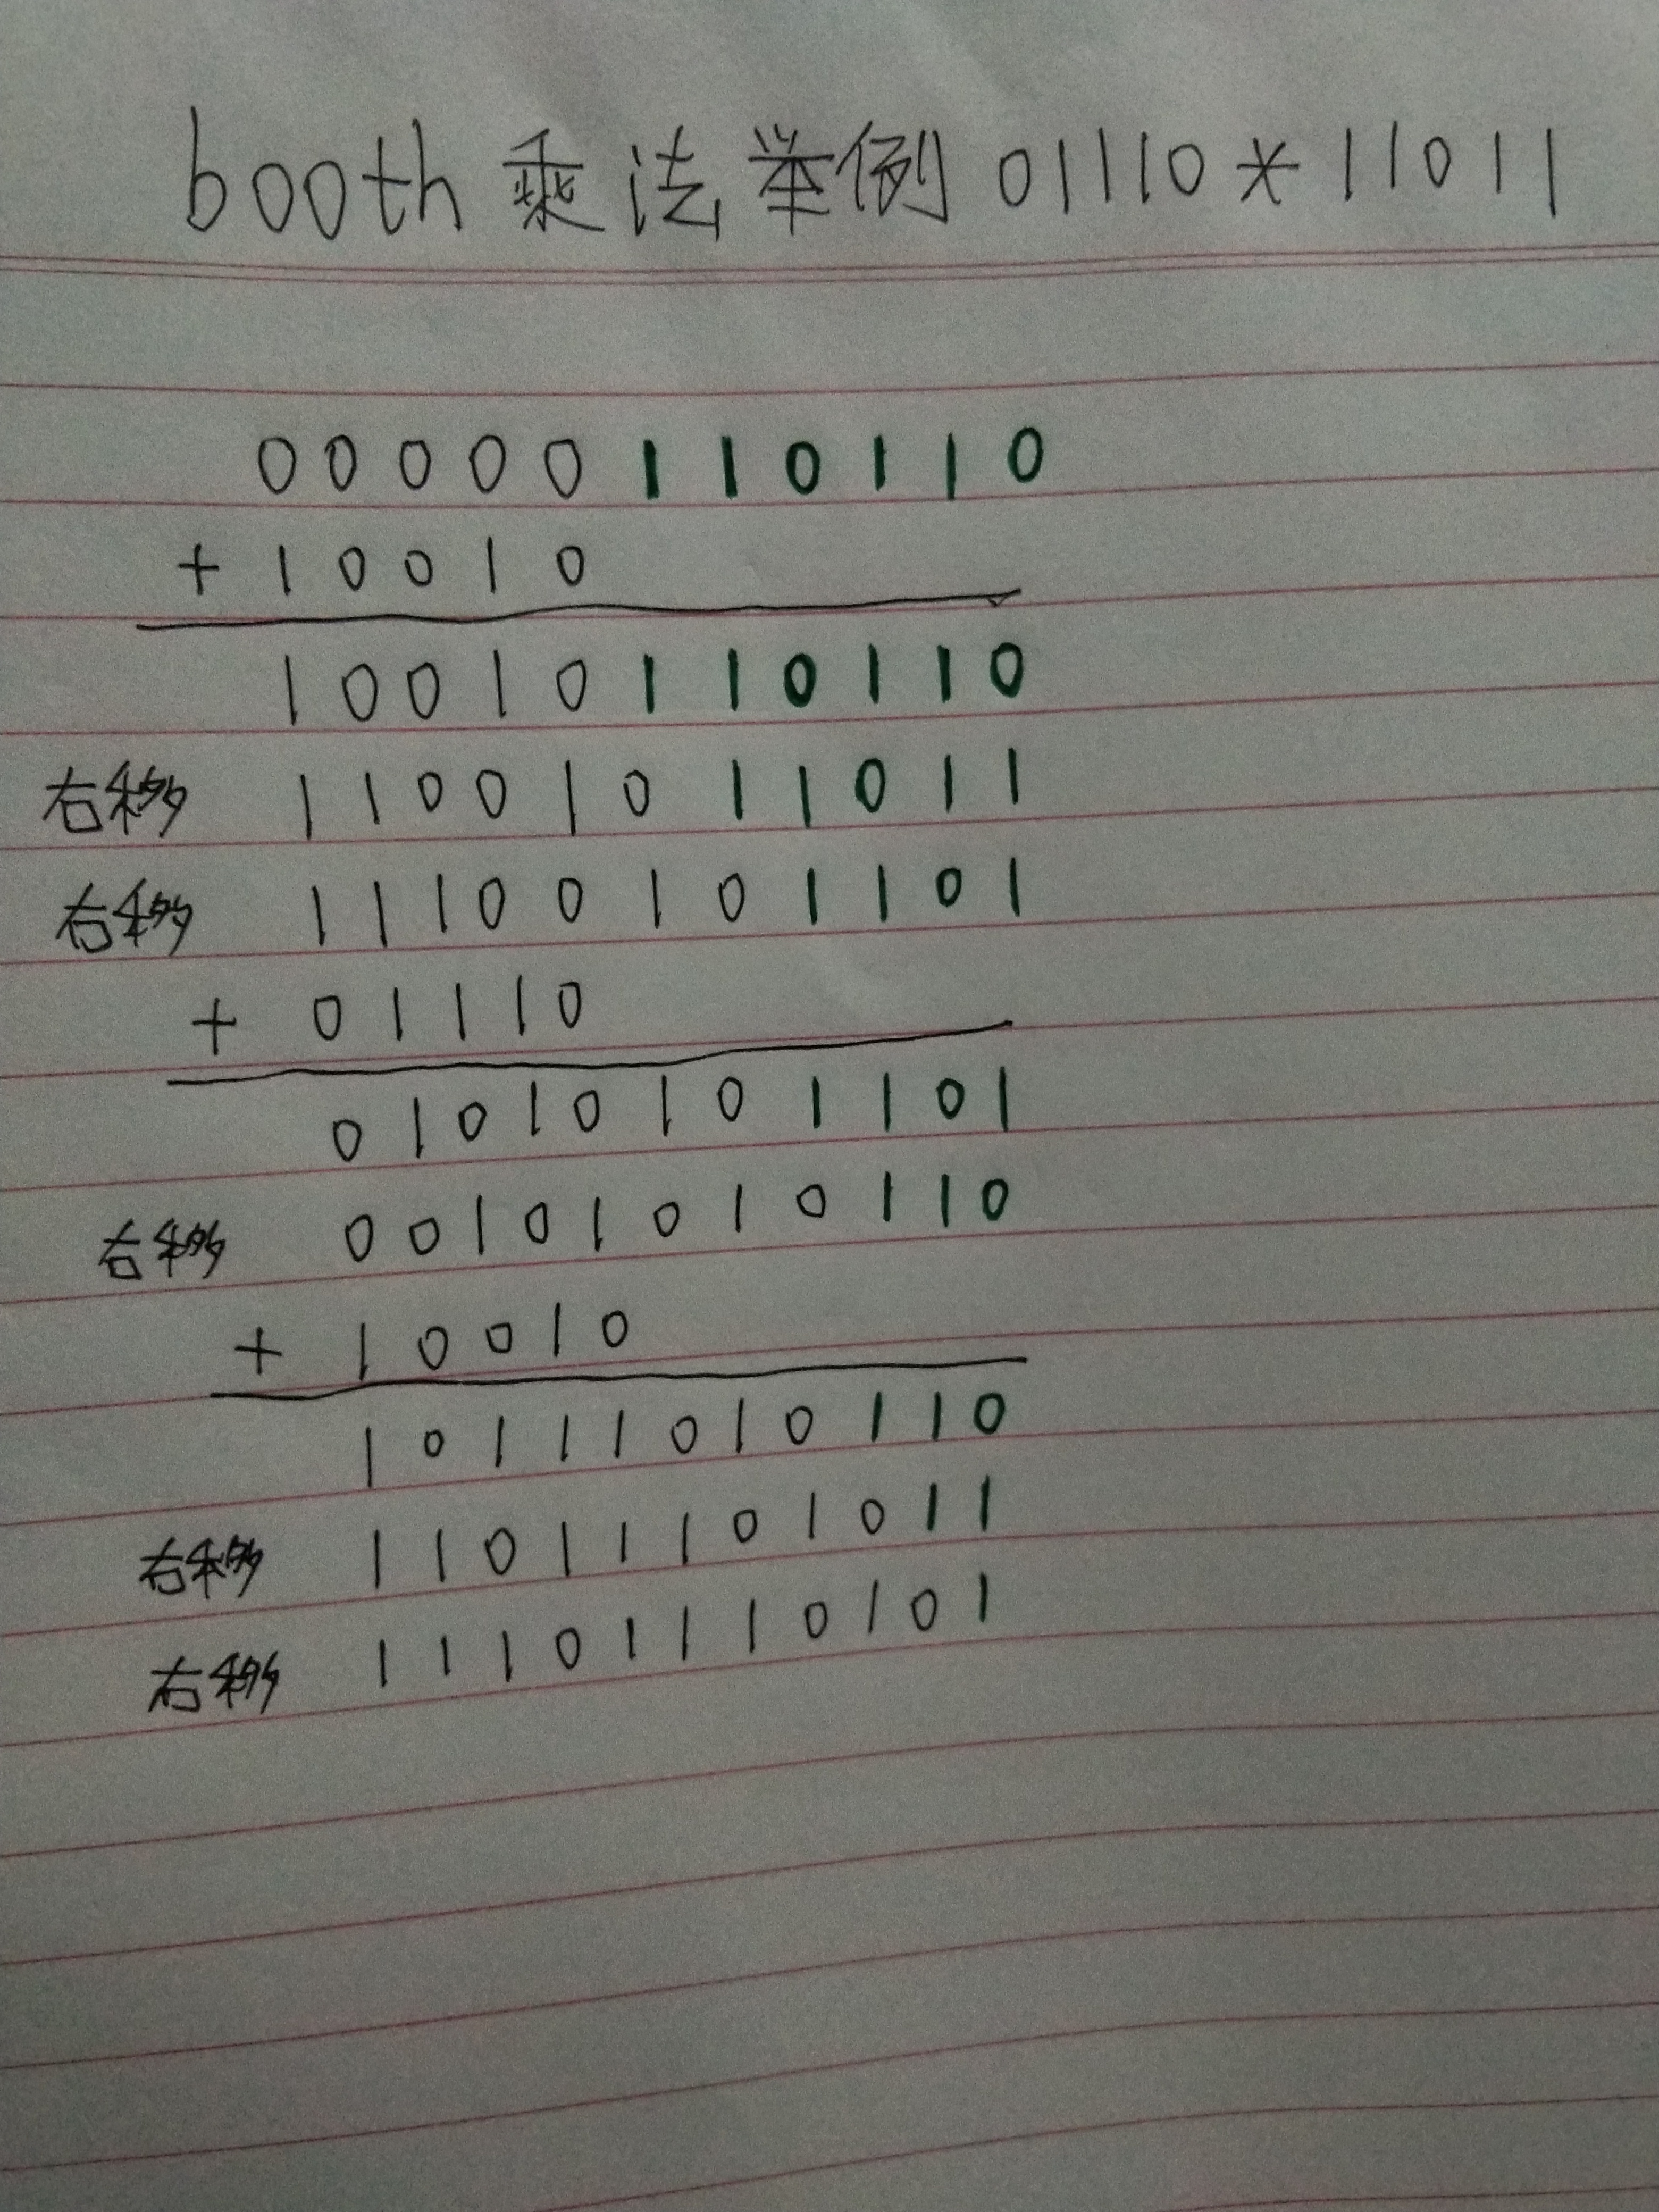 booth 乘法举例 01110 * 11011
00000110110
+ 10010
10010110110
右移 11001011011
右移 11100101101
+ 01110
01010101101
右移 00101010110
+ 10010
10111010110
右移 11011101011
右移 11101110101